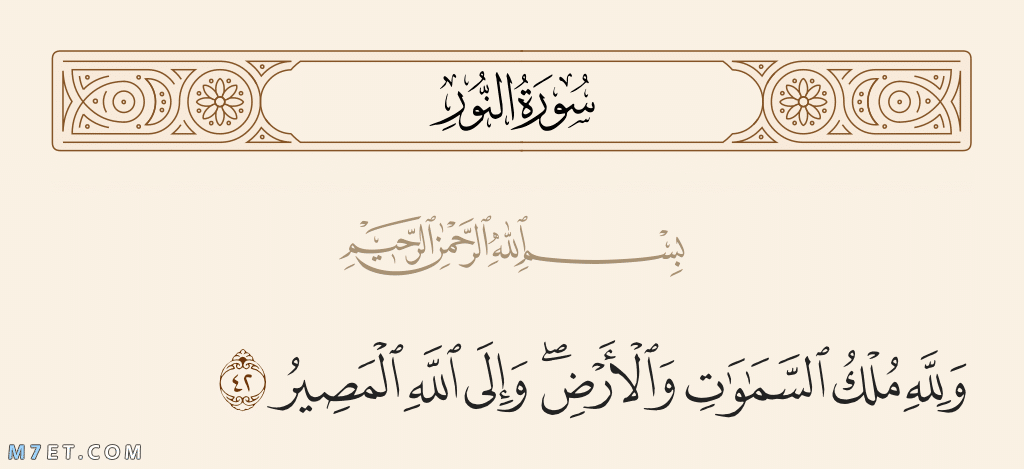 سُورَةُ النُّورِ
بِسْمِ ٱللَّهِ ٱلرَّحْمَٰنِ ٱلرَّحِيمِ
وَلِلَّهِ مُلْكُ ٱلسَّمَٰوَٰتِ وَٱلْأَرْضِ ۖ وَإِلَى ٱللَّهِ ٱلْمَصِيرُ ٤٢
M7ET.COM